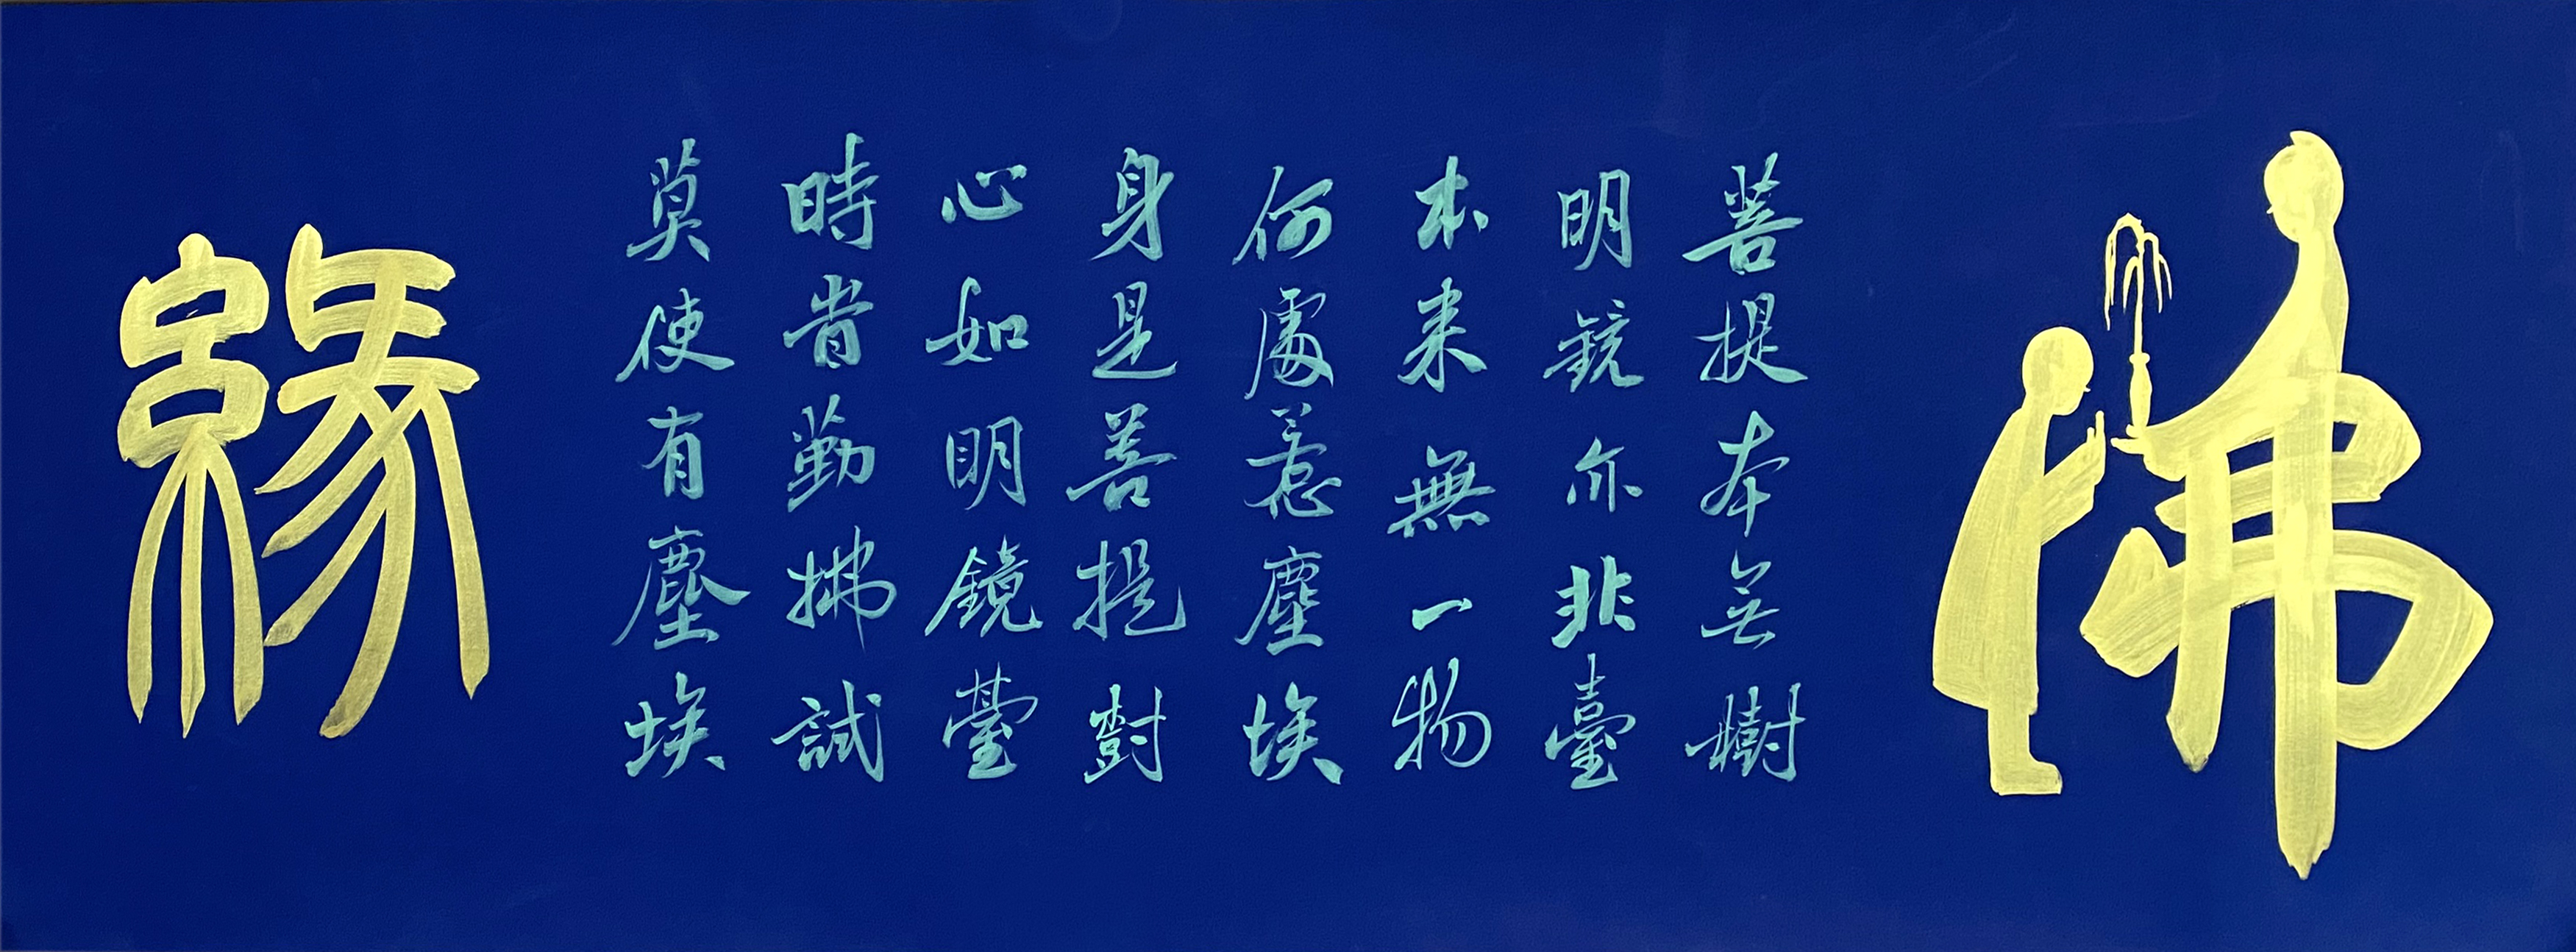 佛
菩提本無樹
明鏡亦非臺
本来無一物
何處惹塵埃
身是菩提樹
心如明鏡臺
時常勤拂試
莫使有塵埃
緣